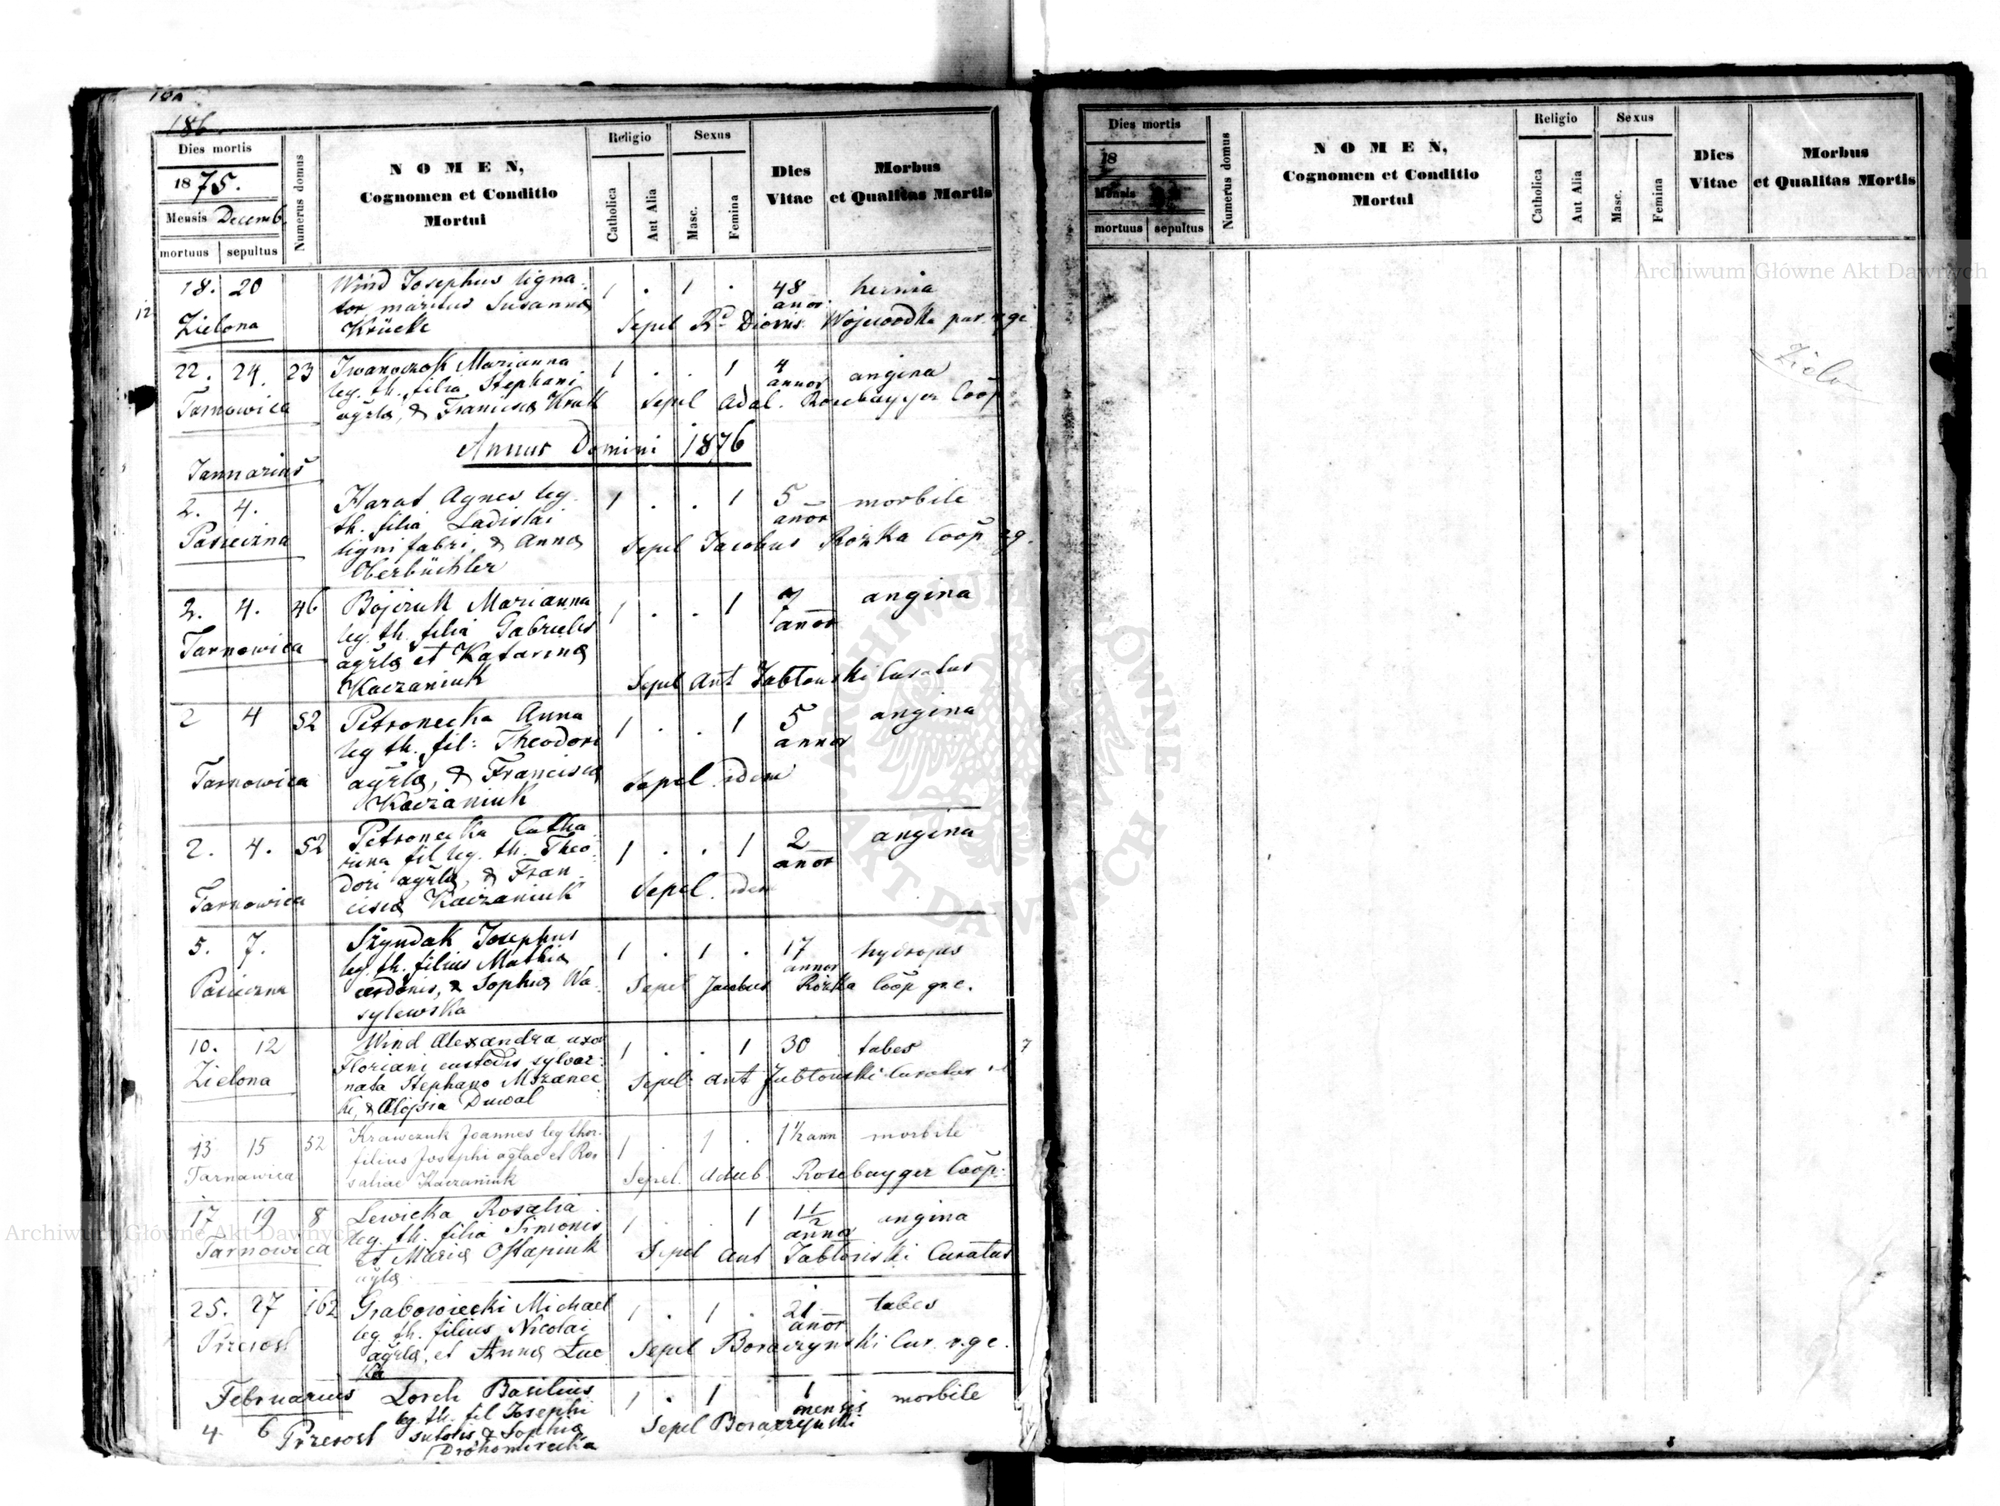 186
Dies mortis
1875.
Mensis Decemb.
mortuus sepultus
Numerus domus
NOMEN,
Cognomen et Conditio
Mortui
Religio
Catholica
Aut Alia
Sexus
Masc.
Femina
Dies
Vitae
Morbus
et Qualitas Mortis
18. 20 Wind Josephus ligna- 1 . 1 . 48 hernia
tor maritus Susanna añor.
12 Zielona Krücke Sepel Dionis. Wojewodka par.
22. 24. 23 Iwanczok Marianna 1 . . 1 4 angina
leg. th. filia Stephani annor
Tarnowica agrlæ, & Francisca Kruk Sepel Adal. Rosebayger Coop
Annus Domini 1876
Januarius
2. 4. Harat Agnes leg. 1 . . 1 5 morbile
th. filia Ladislai añor
Pasieczna ligni fabri, & Anna Sepel Jacobus Rożka Coop rge.
Oberbüchler
2. 4. 46 Bojczuk Marianna 1 . . 1 7 angina
leg. th. filia Gabrielis añor
Tarnowica agrlæ et Katarina
Kaczaniuk Sepel Ant Jabłonski Curatus
2 4 52 Petronecka Anna 1 . . 1 5 angina
leg th. fil: Theodori annor
Tarnowica agrlæ, & Francisca Sepel idem
Kaczaniuk
2. 4. 52 Petronecka Catha- 1 . . 1 2 angina
rina fil leg. th. Theo- añor
dori agrlæ, & Fran- Sepel. idem
Tarnowica cisca Kaczaniuk
5. 7. Szyndak Josephus 1 . 1 . 17 hydrops
leg. th. filius Mathia annor
Pasieczna cerdonis, & Sophia Wa- Sepel Jacobus Rożka Coop gr.c.
sylewska
10. 12 Wind Alexandra uxor 1 . . 1 30 tabes 7
Floriani custodis sylvar-
Zielona nata Stephano Mrzanec- Sepel: Ant Jabłonski Curatus
ki, & Aloysia Duwal
13 15 52 Krawczuk Joannes leg thor. 1 . 1 . 1½ ann morbile
filius Josephi aglae et Ro-
Tarnawica saliae Kaczaniuk Sepel. Adalb. Rosebayger Coop.
17 19 8 Lewicka Rosalia 1 . . 1 1½ angina
leg. th. filia Simonis anno
Tarnowica et Maria Ostapiuk Sepel Ant Jabłoński Curatus
agrlæ
25. 27 162 Grabowiecki Michael 1 . 1 . 21 tabes
leg. th. filius Nicolai añor
Przerosl agrlæ, et Anna Łuc Sepel Boraczynski Cur. r.g.c.
Februarius Lorch Basilius 1 . 1 . 1 morbile
leg. th. fil Josephi mensis
4 6 Przerosl sutoris & Sophia Sepel Boraczynski
Drohomirecka
Dies mortis
18
Mensis
mortuus sepultus
Numerus domus
NOMEN,
Cognomen et Conditio
Mortui
Religio
Catholica
Aut Alia
Sexus
Masc.
Femina
Dies
Vitae
Morbus
et Qualitas Mortis
Archiwum Główne Akt Dawnych
ARCHIWUM GŁÓWNE AKT DAWNYCH
Archiwum Główne Akt Dawnych